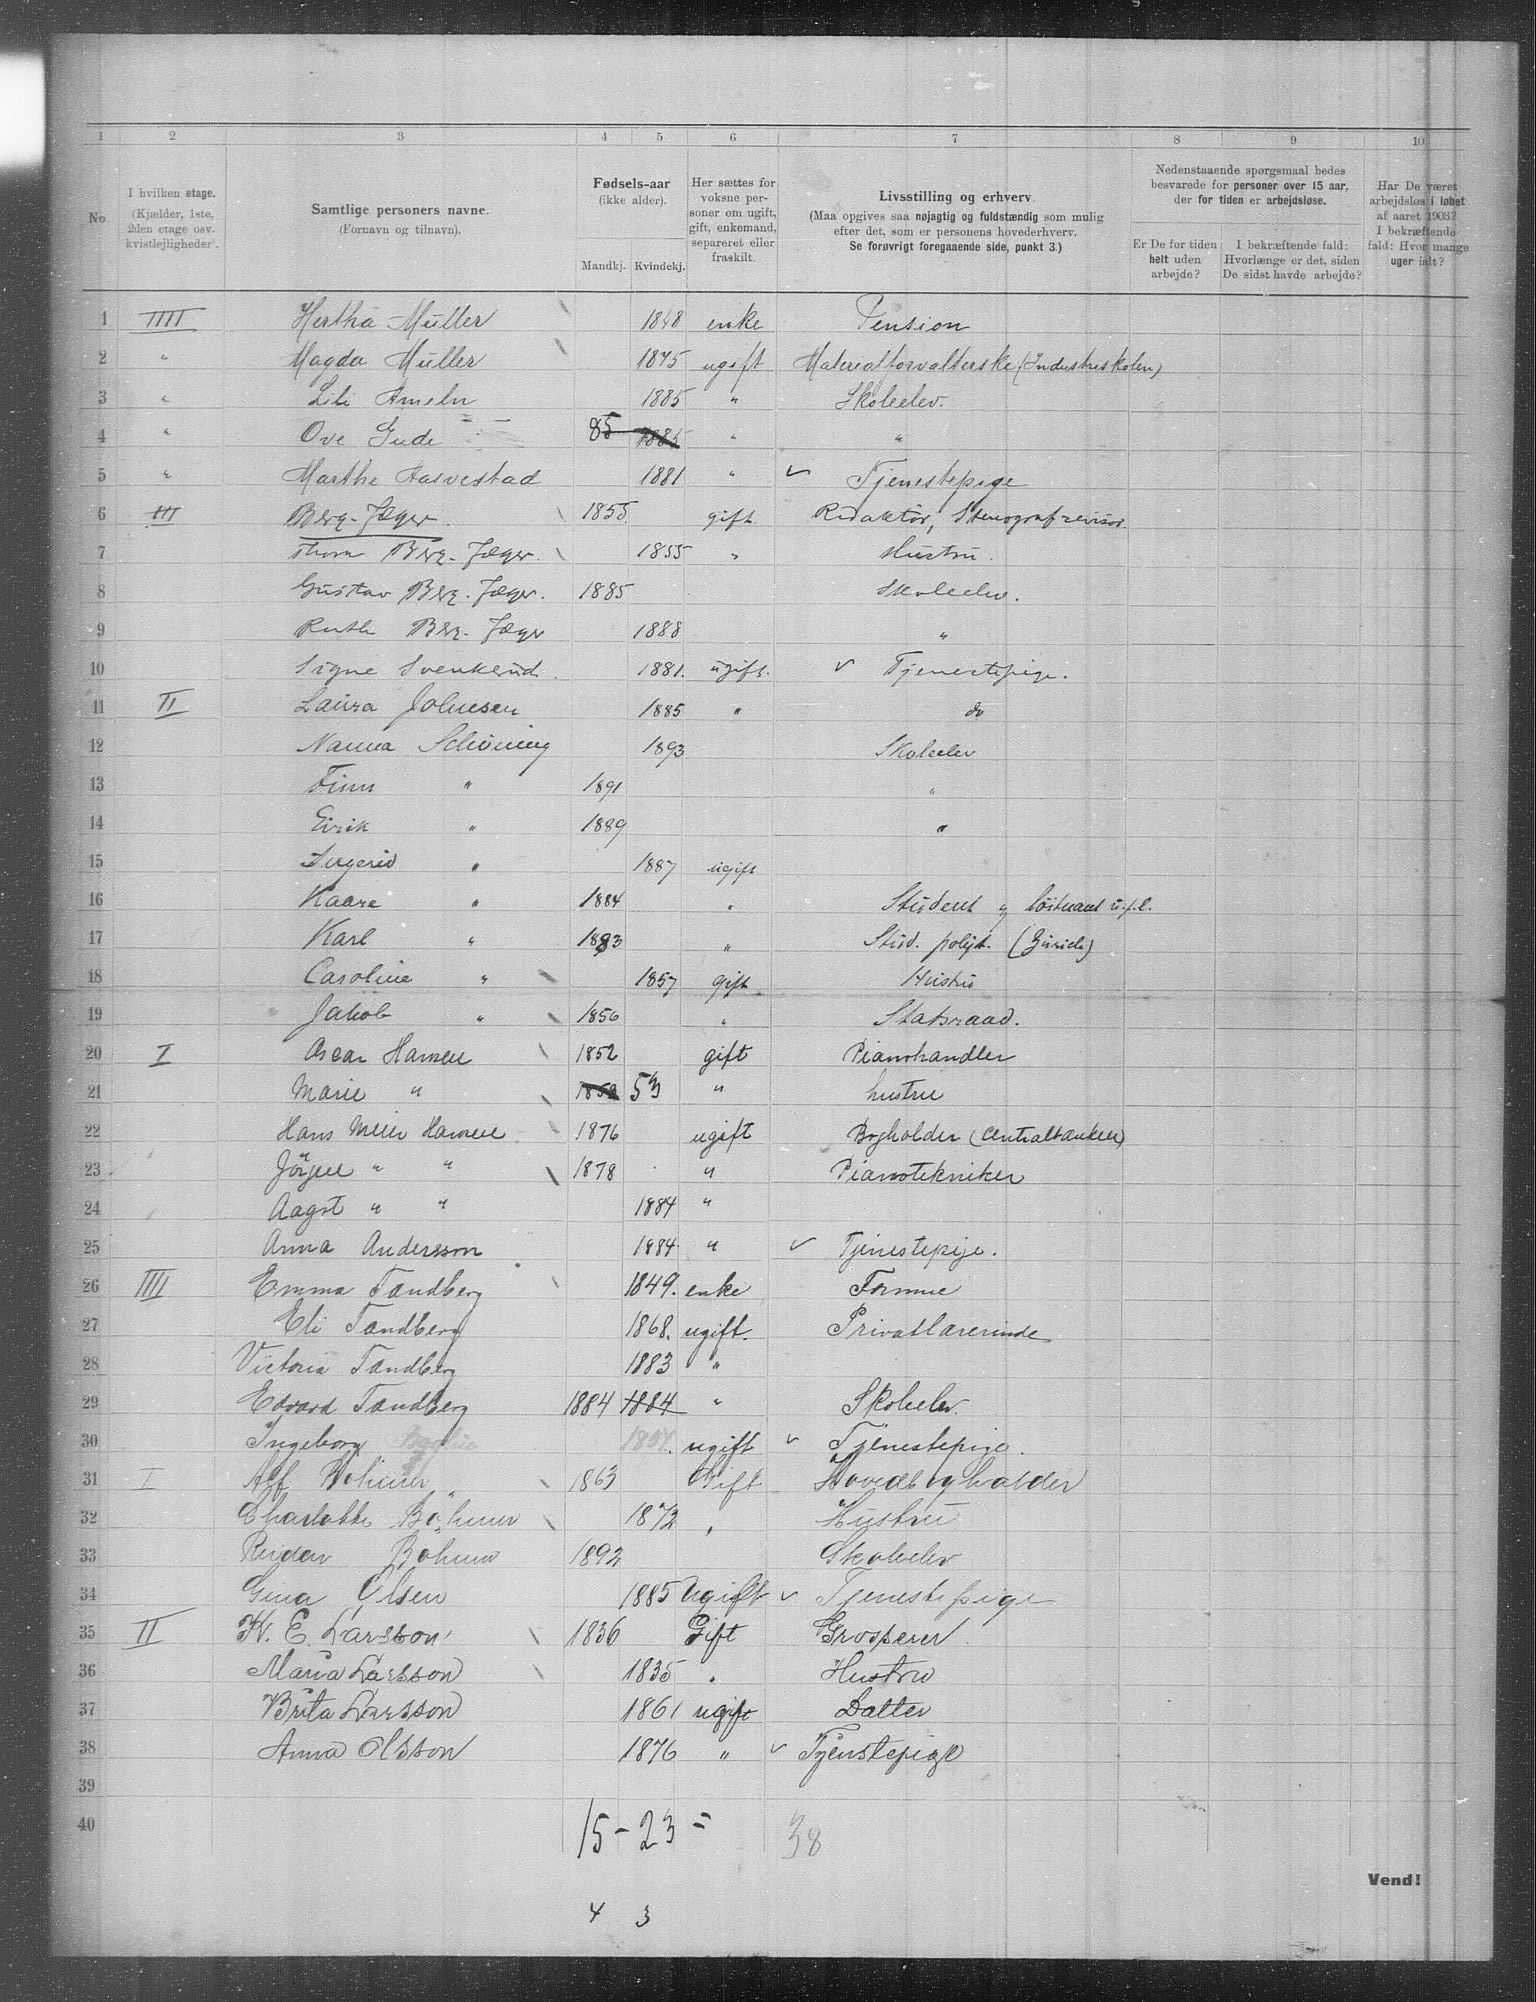 1 2 3 4 5 6 7 8 9 10
No.
I hvilken etage.
(Kjælder, 1ste,
2den etage osv.
kvistlejligheder).
Samtlige personers navne.
(Fornavn og tilnavn).
Fødsels-aar
(ikke alder).
Mandkj. Kvindekj.
Her sættes for
voksne per-
soner om ugift,
gift, enkemand,
separeret eller
fraskilt.
Livsstilling og erhverv
(Maa opgives saa nøjagtig og fuldstændig som mulig
efter det, som er personens hovederhverv.
Se forøvrigt foregaaende side, punkt 3.)
Nedenstaaende spørgsmaal bedes
besvarede for personer over 15 aar,
der for tiden er arbejdsløse.
Er De for tiden
helt uden
arbejde?
I bekræftende fald:
Hvorlænge er det, siden
De sidst havde arbejde?
Har De været
arbejdsløs i løbet
af aaret 1903?
I bekræftende
fald: Hvor mange
uger ialt?
1 IIII Hertha Müller 1848 enke Pension
2 " Magda Müller 1875 ugift Materialforvalterske (Industriskolen)
3 " Lili Ameln 1885 " Skoleelev.
4 " Ove Gude 85 1885 " "
5 " Marthe Aasvestad 1881 " ✓ Tjenestepige
6 III Berg-Jæger. 1855 gift. Redaktør, Stenografrevisor.
7 Thora Berg-Jæger. 1855 " Hustru.
8 Gustav Berg-Jæger. 1885 Skoleelev.
9 Ruth Berg-Jæger 1888 "
10 Signe Svenkerud. 1881. ugift. ✓ Tjenestepige.
11 II Laura Johnsen 1885 " do
12 Nanna Schöning 1893 Skoleelev
13 Finn " 1891 "
14 Eirik " 1889 "
15 Ingerid " 1887 ugift
16 Kaare " 1884 " Student og løitnant u.f.l.
17 Karl " 1883 " Stud. polyt. (Zürich)
18 Caroline " 1857 gift Hustru
19 Jakob " 1856 " Statsraad.
20 I Oscar Hansen 1852 gift Pianohandler
21 Marie " 1853 53 " hustru
22 Hans Meier Hansen 1876 ugift Bogholder (Centralbanken)
23 Jörgen " " 1878 " Pianotekniker
24 Aagot " " 1884 "
25 Anna Andersson 1884 " ✓ Tjenestepige.
26 IIII Emma Tandberg 1849. enke Formue
27 Eli Tandberg 1868. ugift. Privatlærerinde
28 Victoria Tandberg 1883 "
29 Edvard Tandberg 1884 1884 " Skoleelev.
30 Ingeborg 1857. ugift ✓ Tjenestepige.
31 I Alf Bohmer 1863 Gift Hovedbogholder
32 Charlotte Böhmer 1872 " Hustru
33 Reidar Böhmer 1892 Skoleelev
34 Gina Olsen 1885 Ugift ✓ Tjenestepige
35 II K. E. Larsson 1836 Gift Grosserer.
36 Maria Larsson 1835 " Hustru
37 Brita Larsson 1861 ugift Datter
38 Anna Olsson 1876 " ✓ Tjenstepige
39
40 15 - 23 = 38
Vend!
4 3